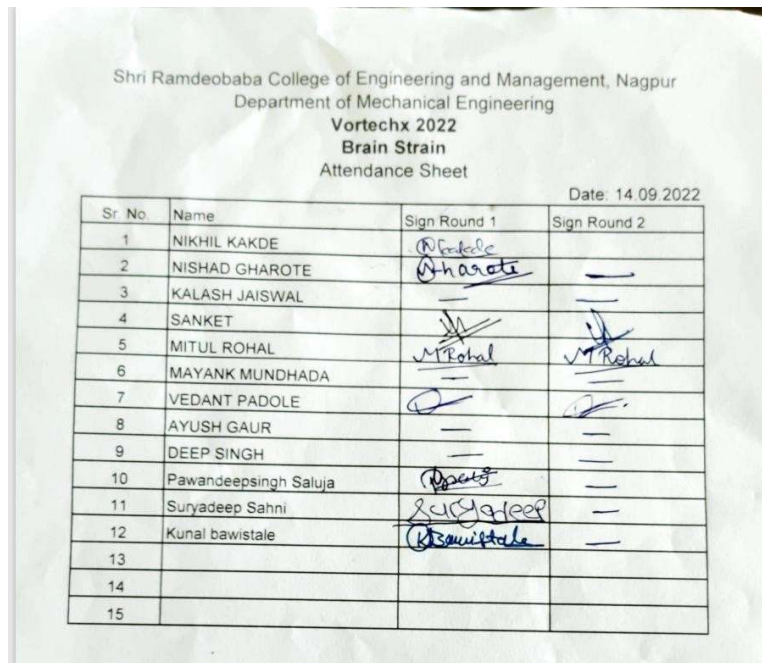 Shri Ramdeobaba College of Engineering and Management, Nagpur
Department of Mechanical Engineering
Vortechx 2022
Brain Strain
Attendance Sheet
Date: 14.09.2022
Sr. No. Name Sign Round 1 Sign Round 2
1 NIKHIL KAKDE
2 NISHAD GHAROTE
3 KALASH JAISWAL — —
4 SANKET
5 MITUL ROHAL MRohal MRohal
6 MAYANK MUNDHADA — —
7 VEDANT PADOLE
8 AYUSH GAUR — —
9 DEEP SINGH — —
10 Pawandeepsingh Saluja —
11 Suryadeep Sahni Suryadeep —
12 Kunal bawistale KBawistale —
13
14
15